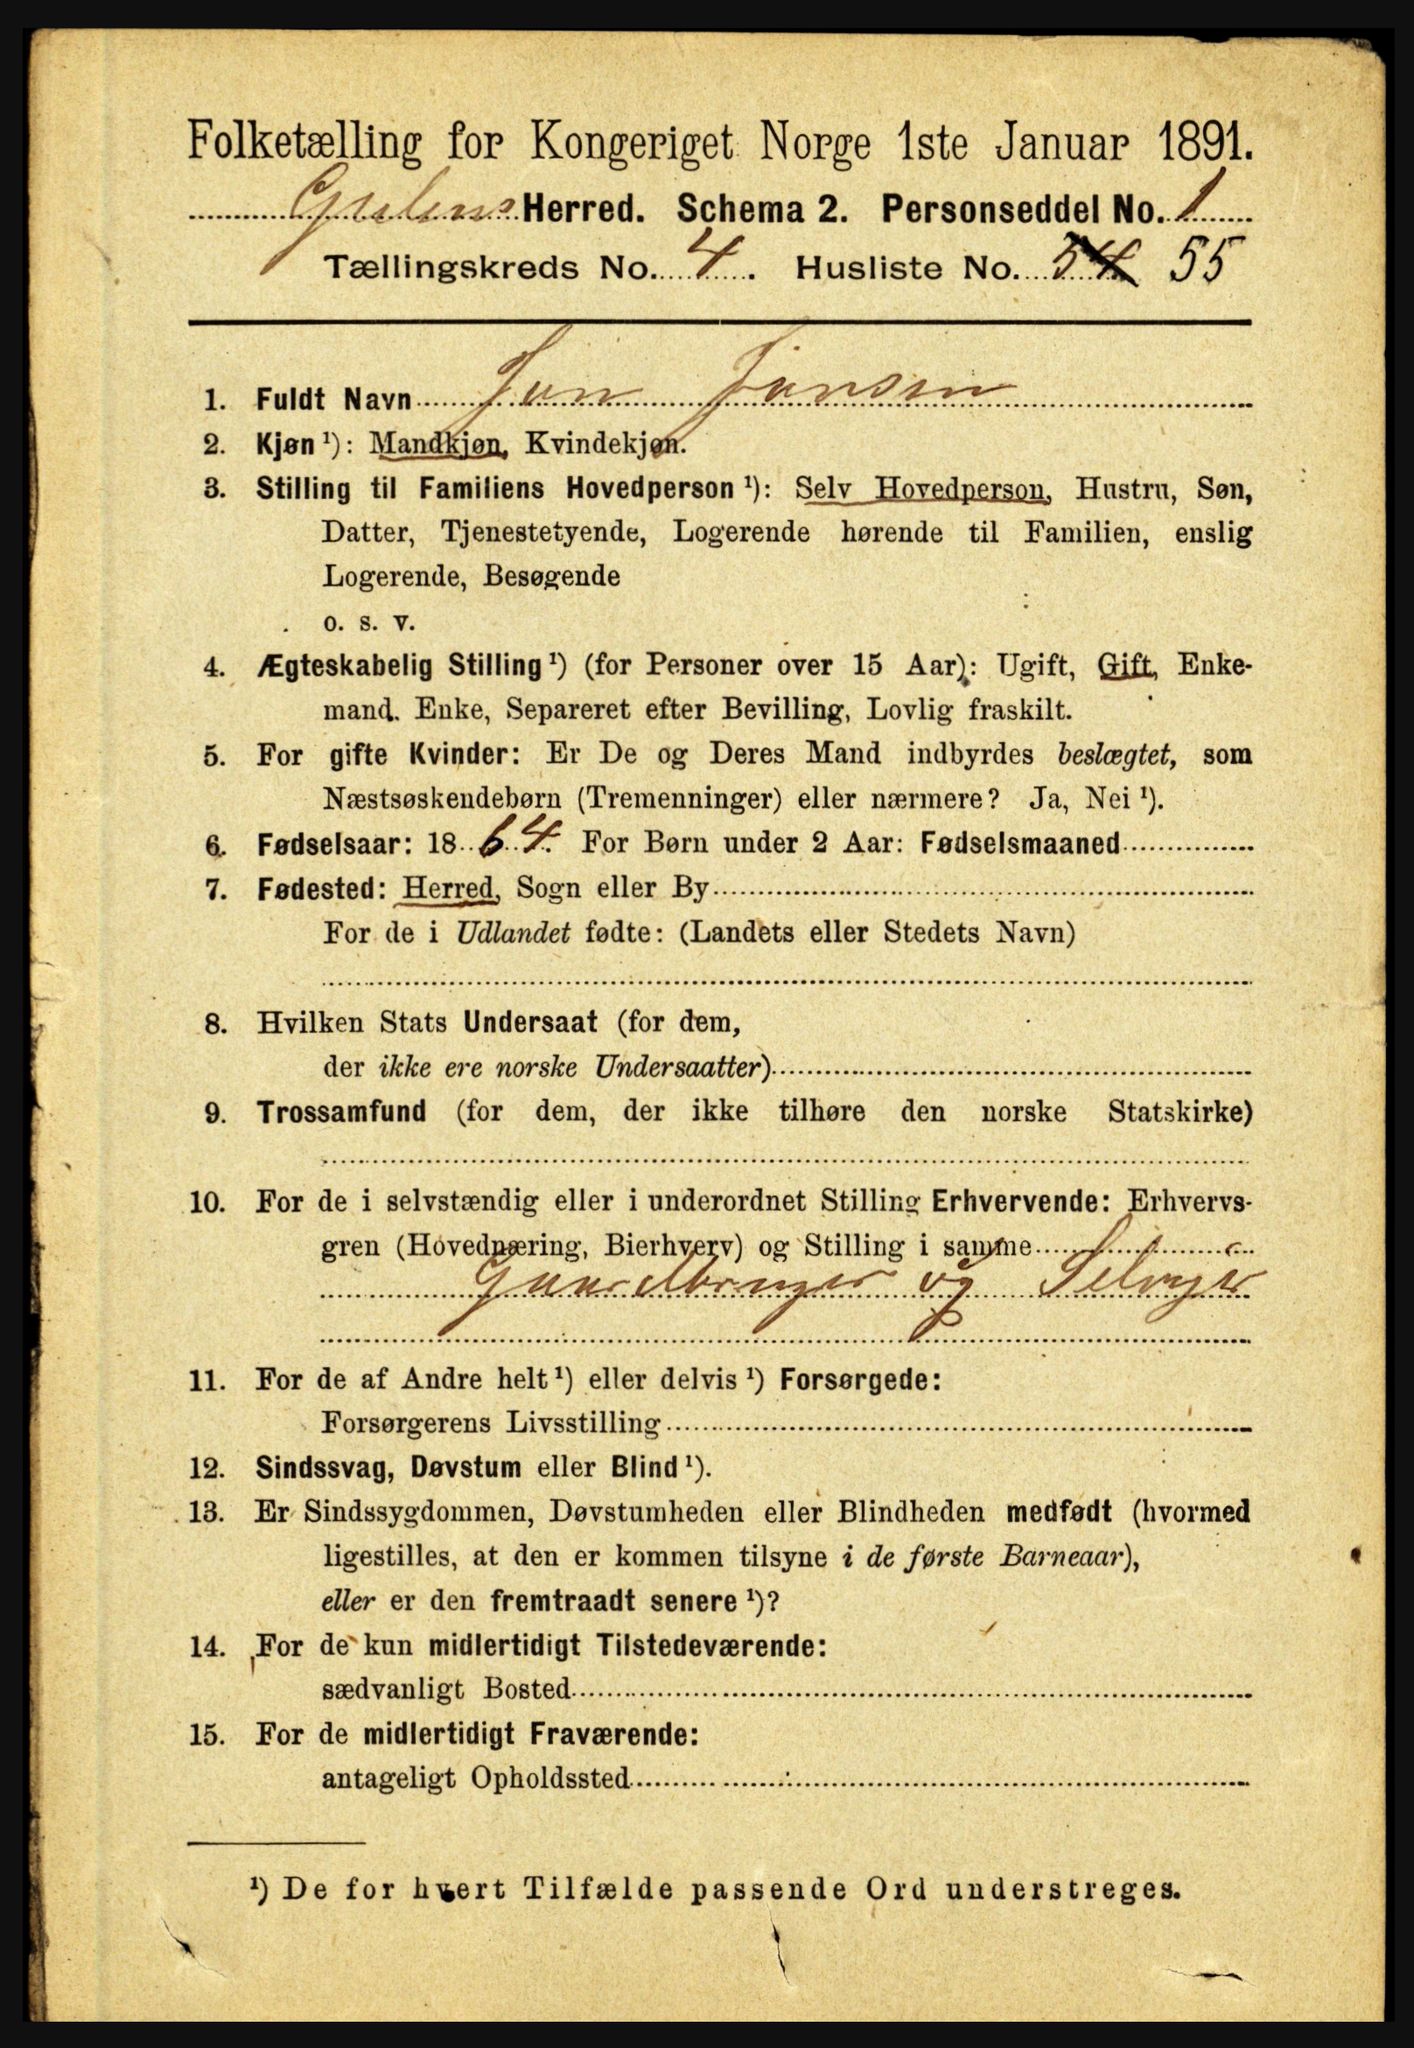 Folketælling for Kongeriget Norge 1ste Januar 1891.
Gulens Herred. Schema 2. Personseddel No. 1
Tællingskreds No. 4. Husliste No. 54 55
1. Fuldt Navn Jon Jonsen
2. Kjøn ¹): Mandkjøn, Kvindekjøn.
3. Stilling til Familiens Hovedperson ¹): Selv Hovedperson, Hustru, Søn,
Datter, Tjenestetyende, Logerende hørende til Familien, enslig
Logerende, Besøgende
o. s. v.
4. Ægteskabelig Stilling ¹) (for Personer over 15 Aar): Ugift, Gift, Enke-
mand. Enke, Separeret efter Bevilling, Lovlig fraskilt.
5. For gifte Kvinder: Er De og Deres Mand indbyrdes beslægtet, som
Næstsøskendebørn (Tremenninger) eller nærmere? Ja, Nei ¹).
6. Fødselsaar: 1864. For Børn under 2 Aar: Fødselsmaaned
7. Fødested: Herred, Sogn eller By
For de i Udlandet fødte: (Landets eller Stedets Navn)
8. Hvilken Stats Undersaat (for dem,
der ikke ere norske Undersaatter)
9. Trossamfund (for dem, der ikke tilhøre den norske Statskirke)
10. For de i selvstændig eller i underordnet Stilling Erhvervende: Erhvervs-
gren (Hovednæring, Bierhverv) og Stilling i samme
Gaardbruger og Selveier
11. For de af Andre helt ¹) eller delvis ¹) Forsørgede:
Forsørgerens Livsstilling
12. Sindssvag, Døvstum eller Blind ¹).
13. Er Sindssygdommen, Døvstumheden eller Blindheden medfødt (hvormed
ligestilles, at den er kommen tilsyne i de første Barneaar),
eller er den fremtraadt senere ¹)?
14. For de kun midlertidigt Tilstedeværende:
sædvanligt Bosted
15. For de midlertidigt Fraværende:
antageligt Opholdssted
¹) De for hvert Tilfælde passende Ord understreges.